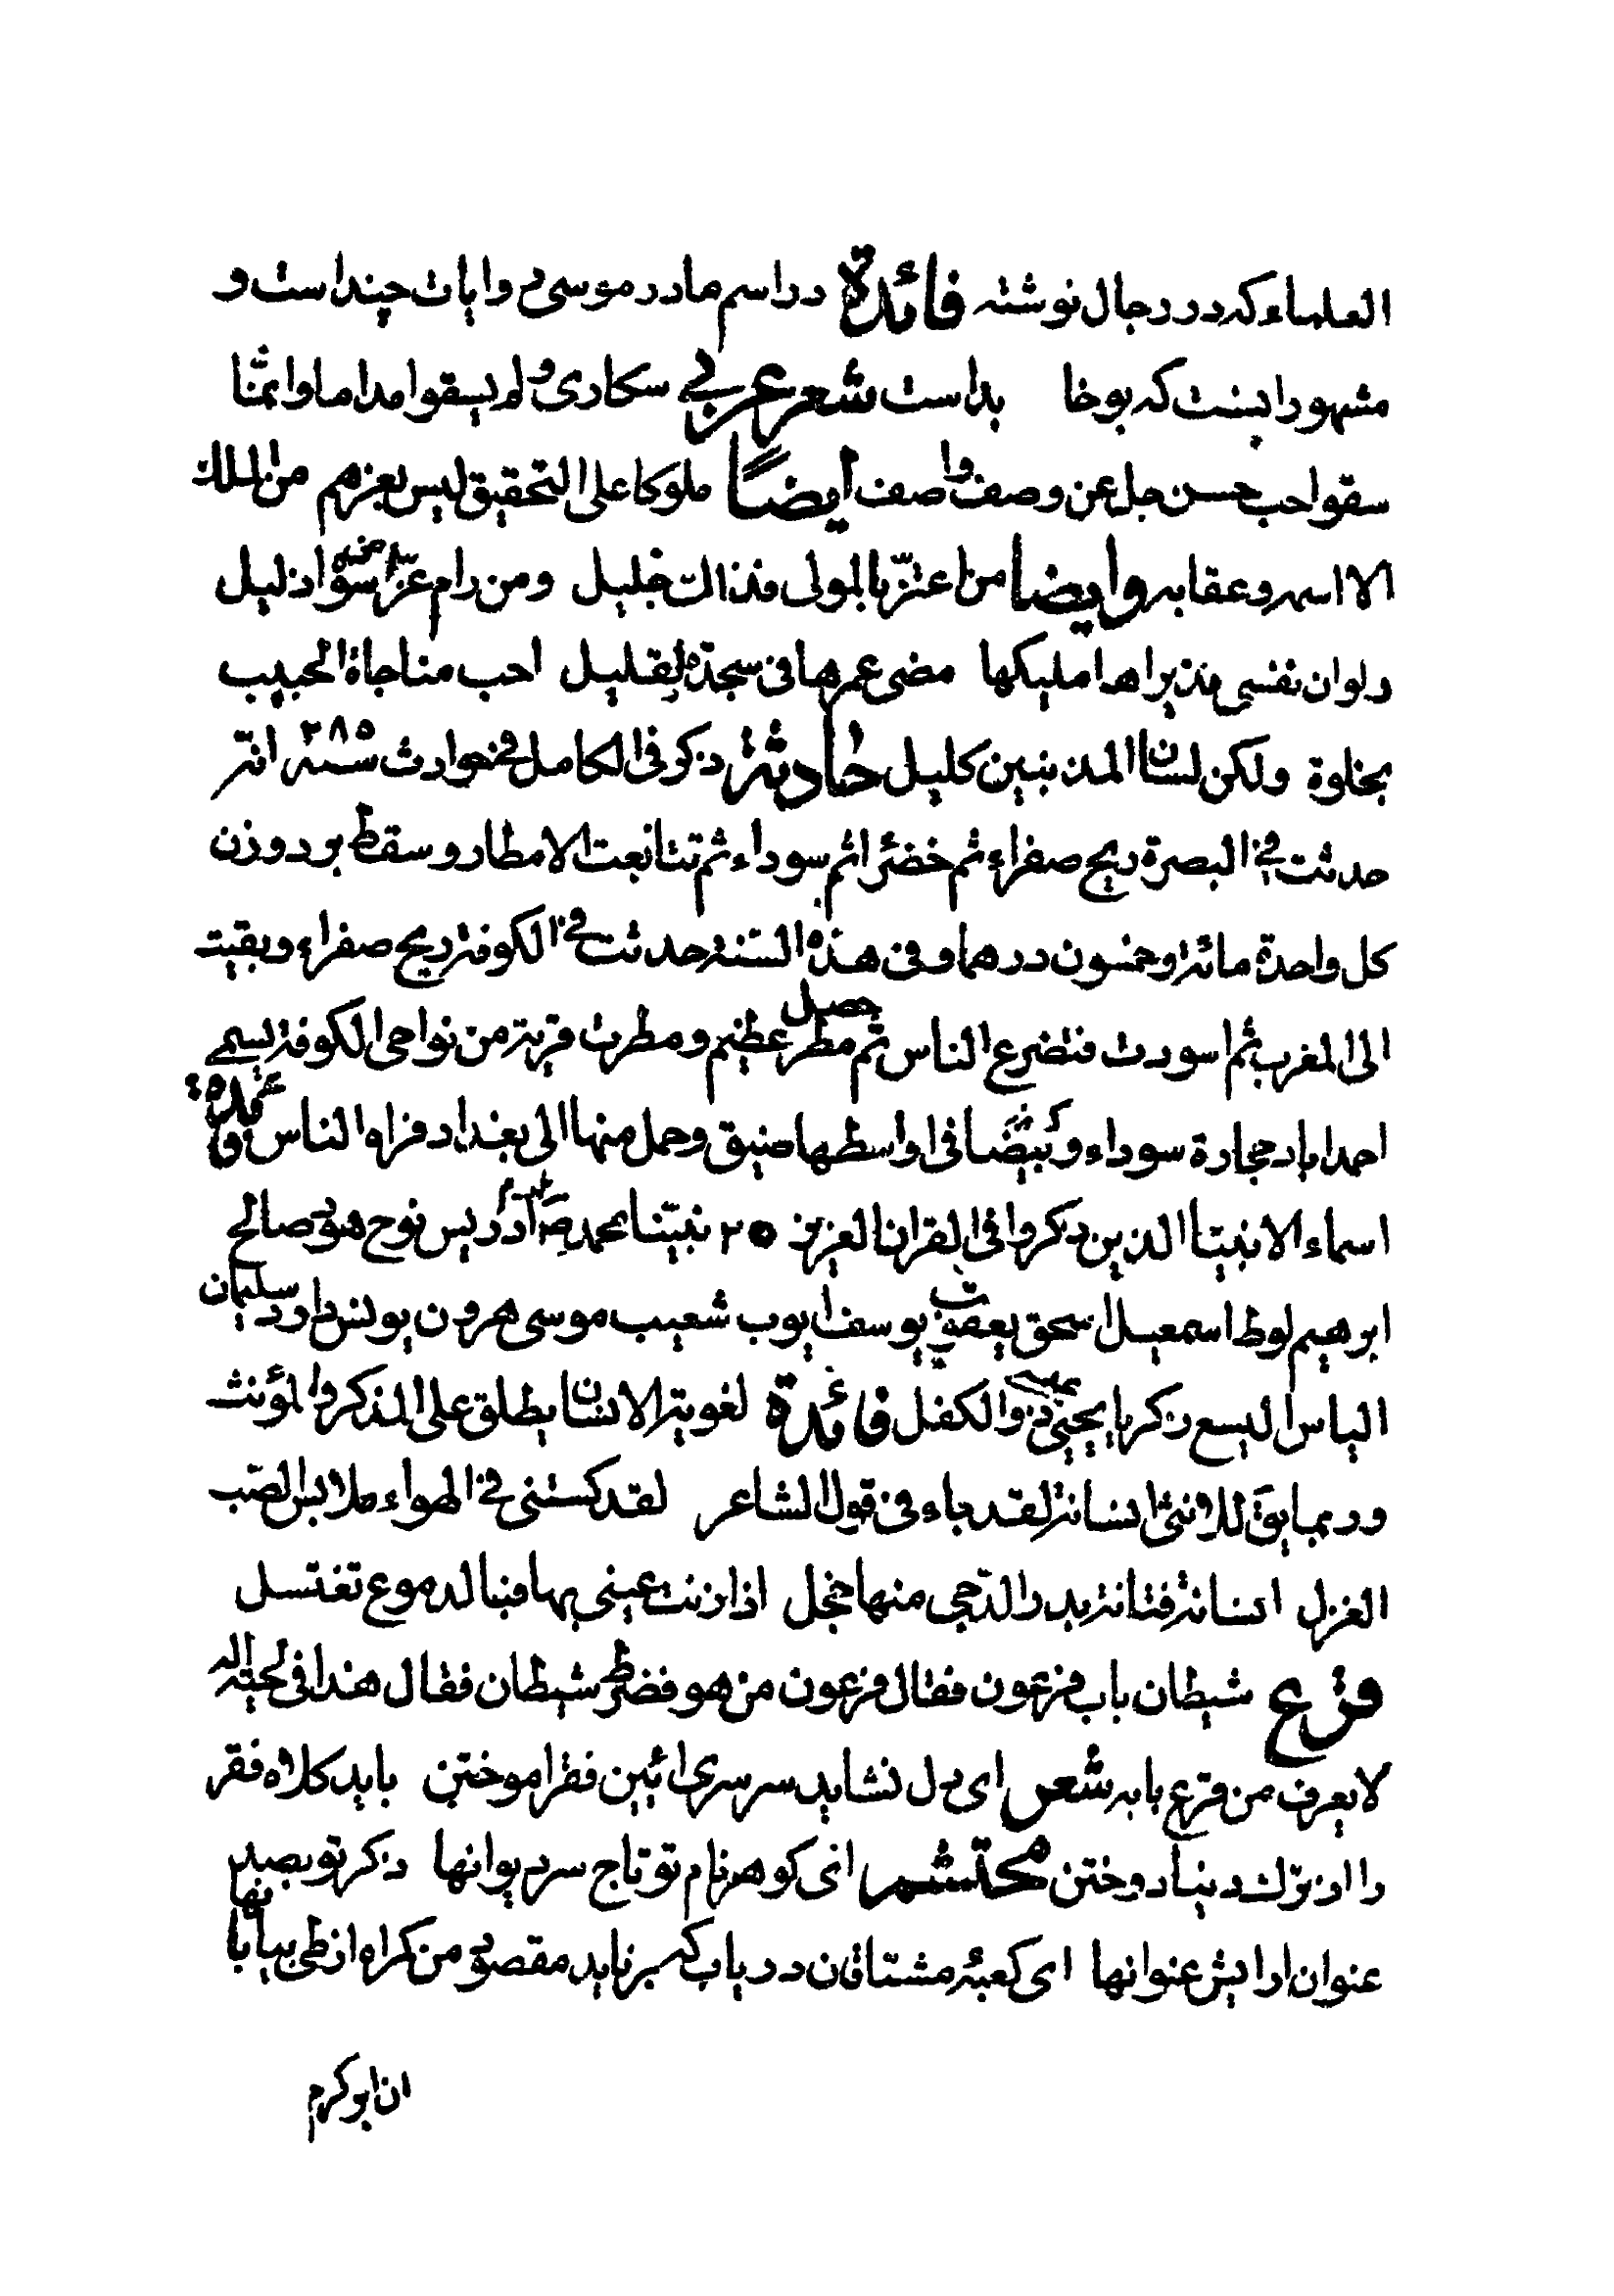 العلماء كه در رجال نوشته فائدة در اسم مادر موسى روايات چند است و
مشهور اينست كه يوخا بد است شعر عربي سكارى ولم يسقوا مداما وانمّا
سقوا حب حسن جل عن وصف واصف أيضاً ملوكا على التحقيق ليس لغيرهم من الملك
الا اسمه وعقابه وايضا من اعتزّ بالمولى فذاك جليل ومن رام عزّا من سواه ذليل
ولو ان نفسي مذ براها مليكها مضى عمرها في سجدة لقليل احب مناجاة الحبيب
بخلوة ولكن لسان المذنبين كليل حادثة ذكر في الكامل في حوادث سنه ٢٨٥ انه
حدثت في البصرة ريح صفراء ثم خضرا ثم سوداء ثم تتابعت الامطار وسقط برد وزن
كل واحدة مائة وخمسون درهما وفي هذه السنة حدثت في الكوفة ريح صفراء وبقيت
الى المغرب ثم اسودت فتضرع الناس ثم حصل مطر عظيم ومطرت قرية من نواحي الكوفة تسمى
احمداباد حجارة سوداء وبيضا في اواسطها ضيق وحمل منها الى بغداد فراوا الناس فائدة
اسماء الانبيا الذين ذكروا في القران العزيز ٢٥ نبيّنا محمد ص آدم ادريس نوح هود صالح
ابرهيم لوط اسمعيل اسحق يعقوب يوسف ايوب شعيب موسى هرون يونس داود سليمان
الياس اليسع زكريا يحيى عيسى ذو الكفل فائدة لغوية الانسان يطلق على المذكر والمؤنث
وربما يق للانثى انسانة لقد جاء في قول الشاعر لقد كستني في الهواء ملابس الصّب
الغزل انسانة فتانة بدر الدّجى منها خجل اذا زنت عيني بها فبالدموع تغتسل
قرع شيطان باب فرعون فقال فرعون من هو فضرط شيطان فقال هذا في لحية اله
لا يعرف من قرع بابه شعر اى دل نشايد سرسرى ائين فقر اموختن بايد كلاه فقر
را از ترك دنيا دوختن محتشم اى كوهر نام تو تاج سر ديوانها ذكر تو بصد
عنوان ارايش عنوانها اى كعبهٔ مشتاقان درياب كه برنايد مقصود من كراه از طى بيابانها
ان ابو كرم